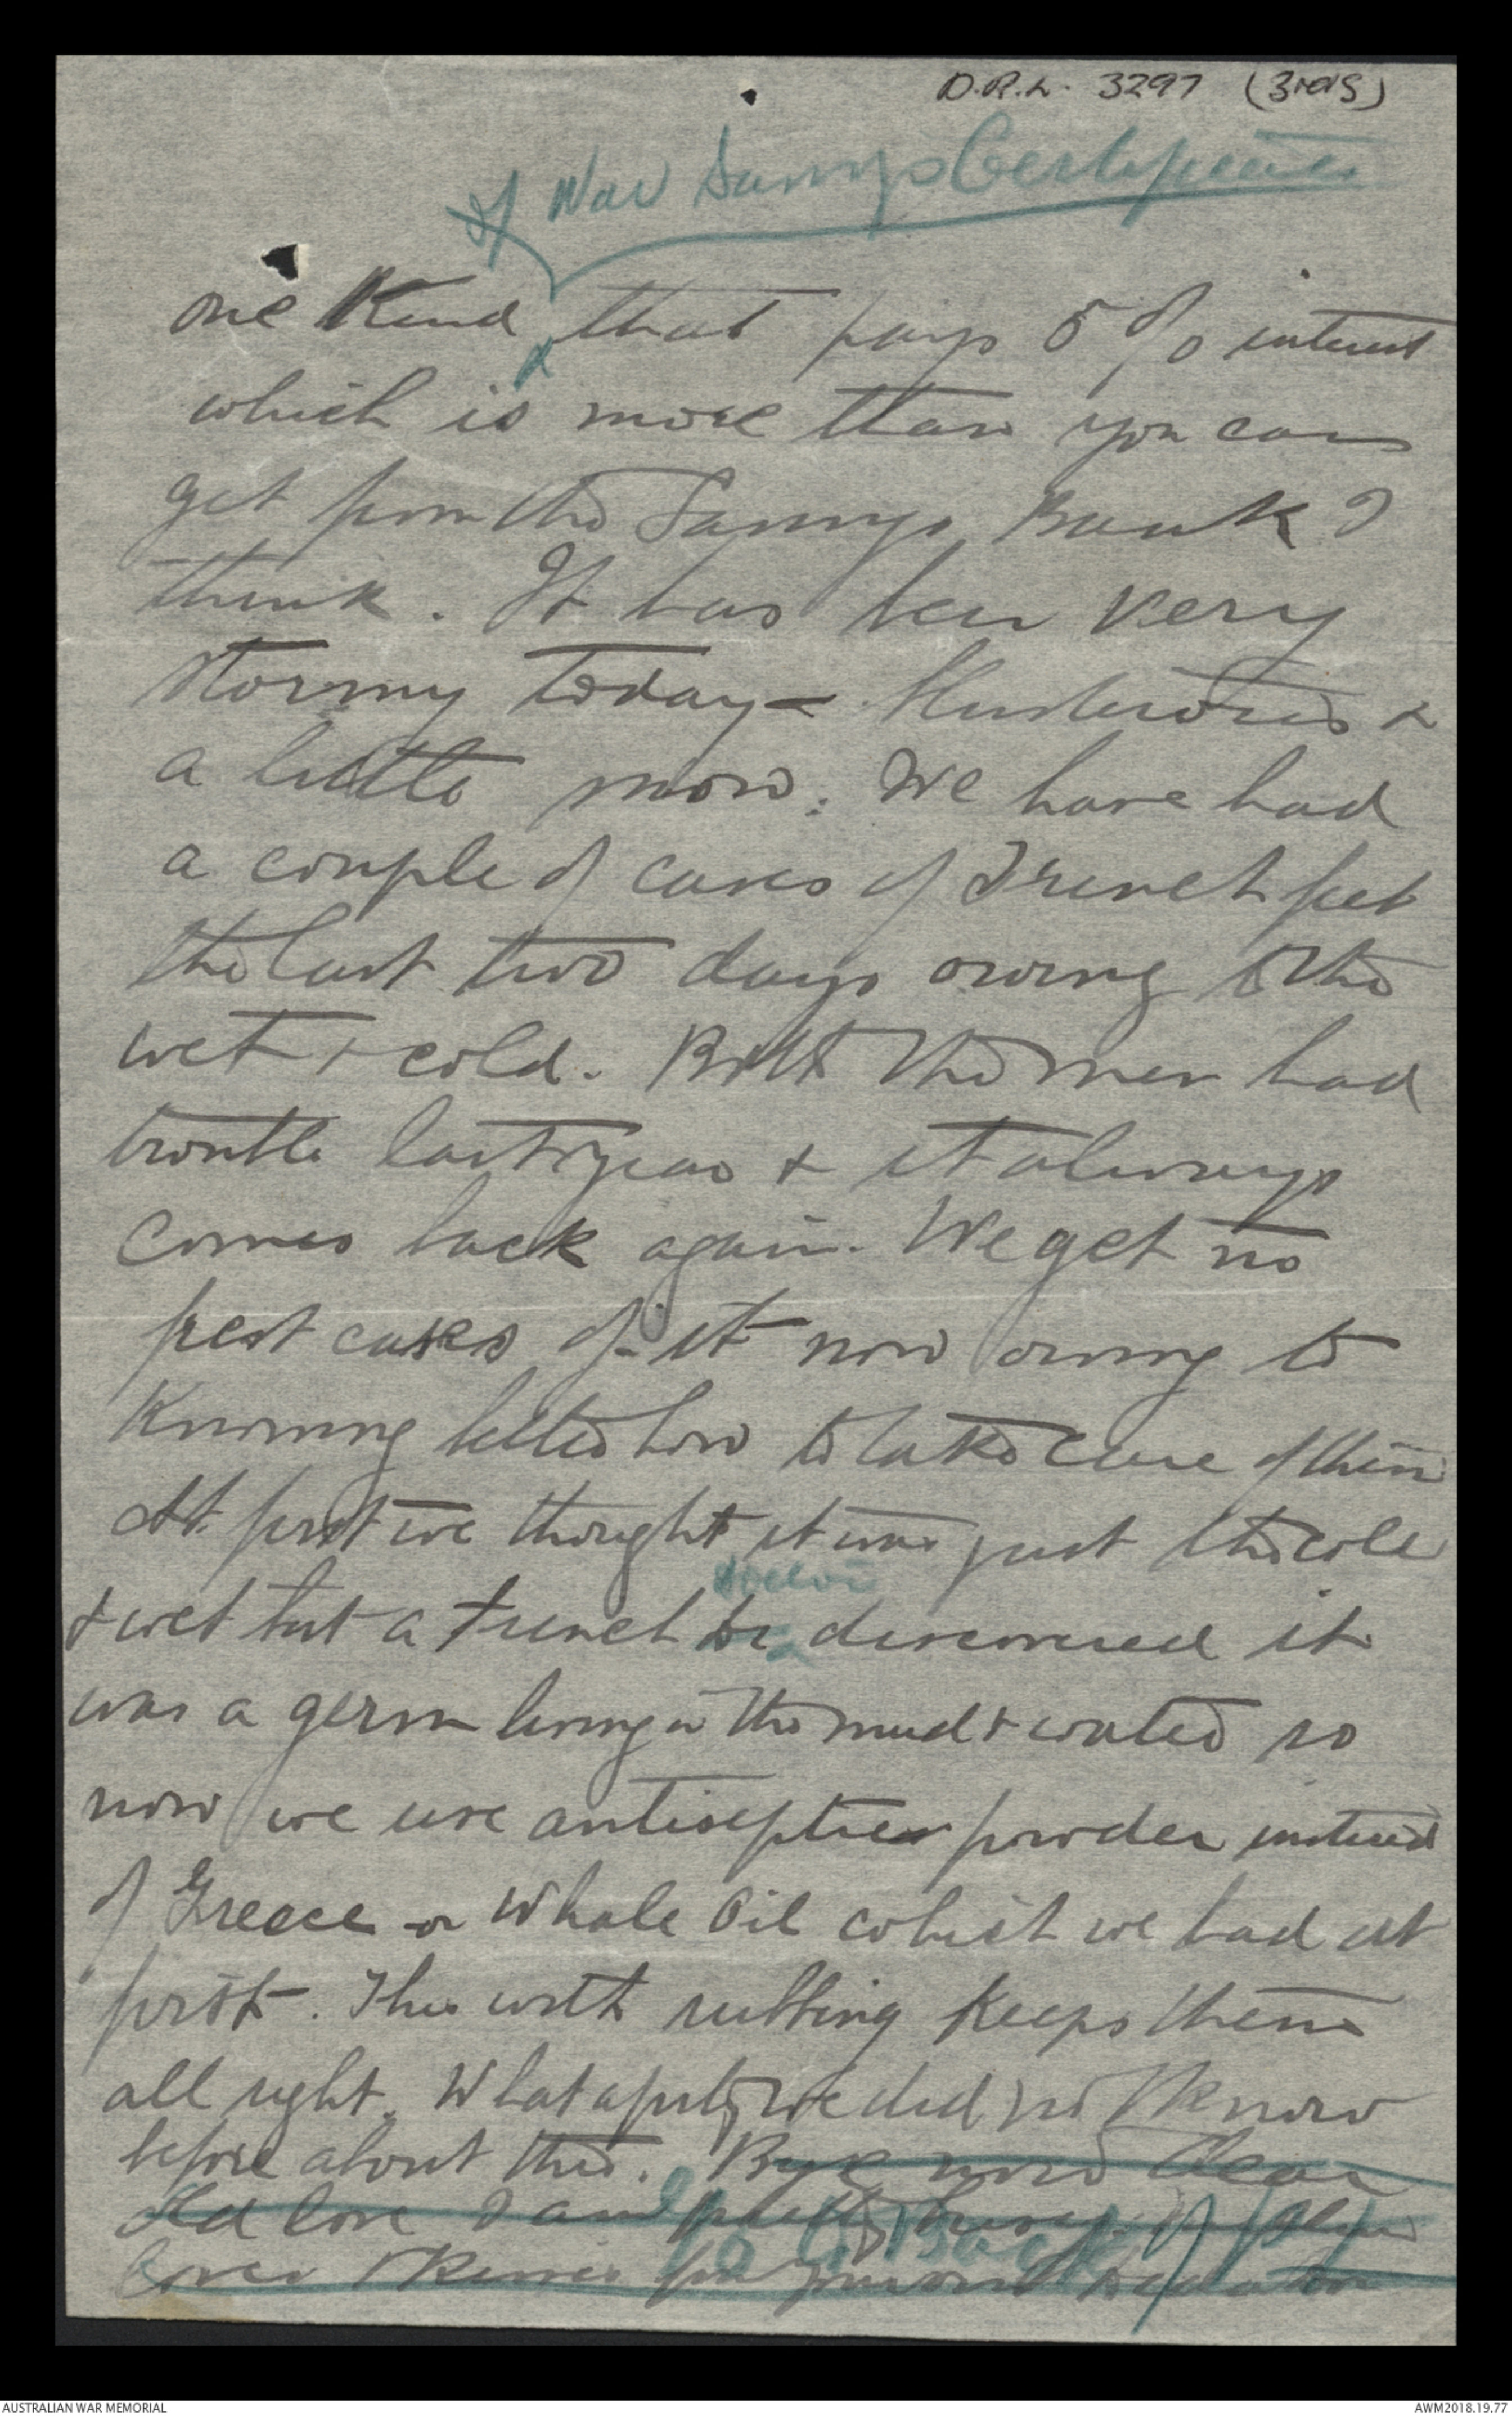 D.R.L. 3297 (3rd S)
of War Savings Certificates
one Kind that pays 5% interest
which is more than you can
get from the Savings Bank I
think. It has been very
stormy today - thunderous &
a little snow. We have had
a couple of cases of Trench feet
the last two days owing to the
wet & cold. Both the men had
trouble last year & it always
comes back again. We get no
fresh cases of it now owing to
Knowing better how to take care of them
At first we thought it was just the cold
doctor
& wet but a french dr discovered it
was a germ living in the mud & water so
now we use antiseptic powder instead
of Greece or Whale Oil which we had at
first. This with rubbing Keeps them
all right. What a pity we did not Know
before about this. Bye now dear
old love I am pretty busy.
loves & Kisses for
AUSTRALIAN WAR MEMORIAL
AWM2018.19.77